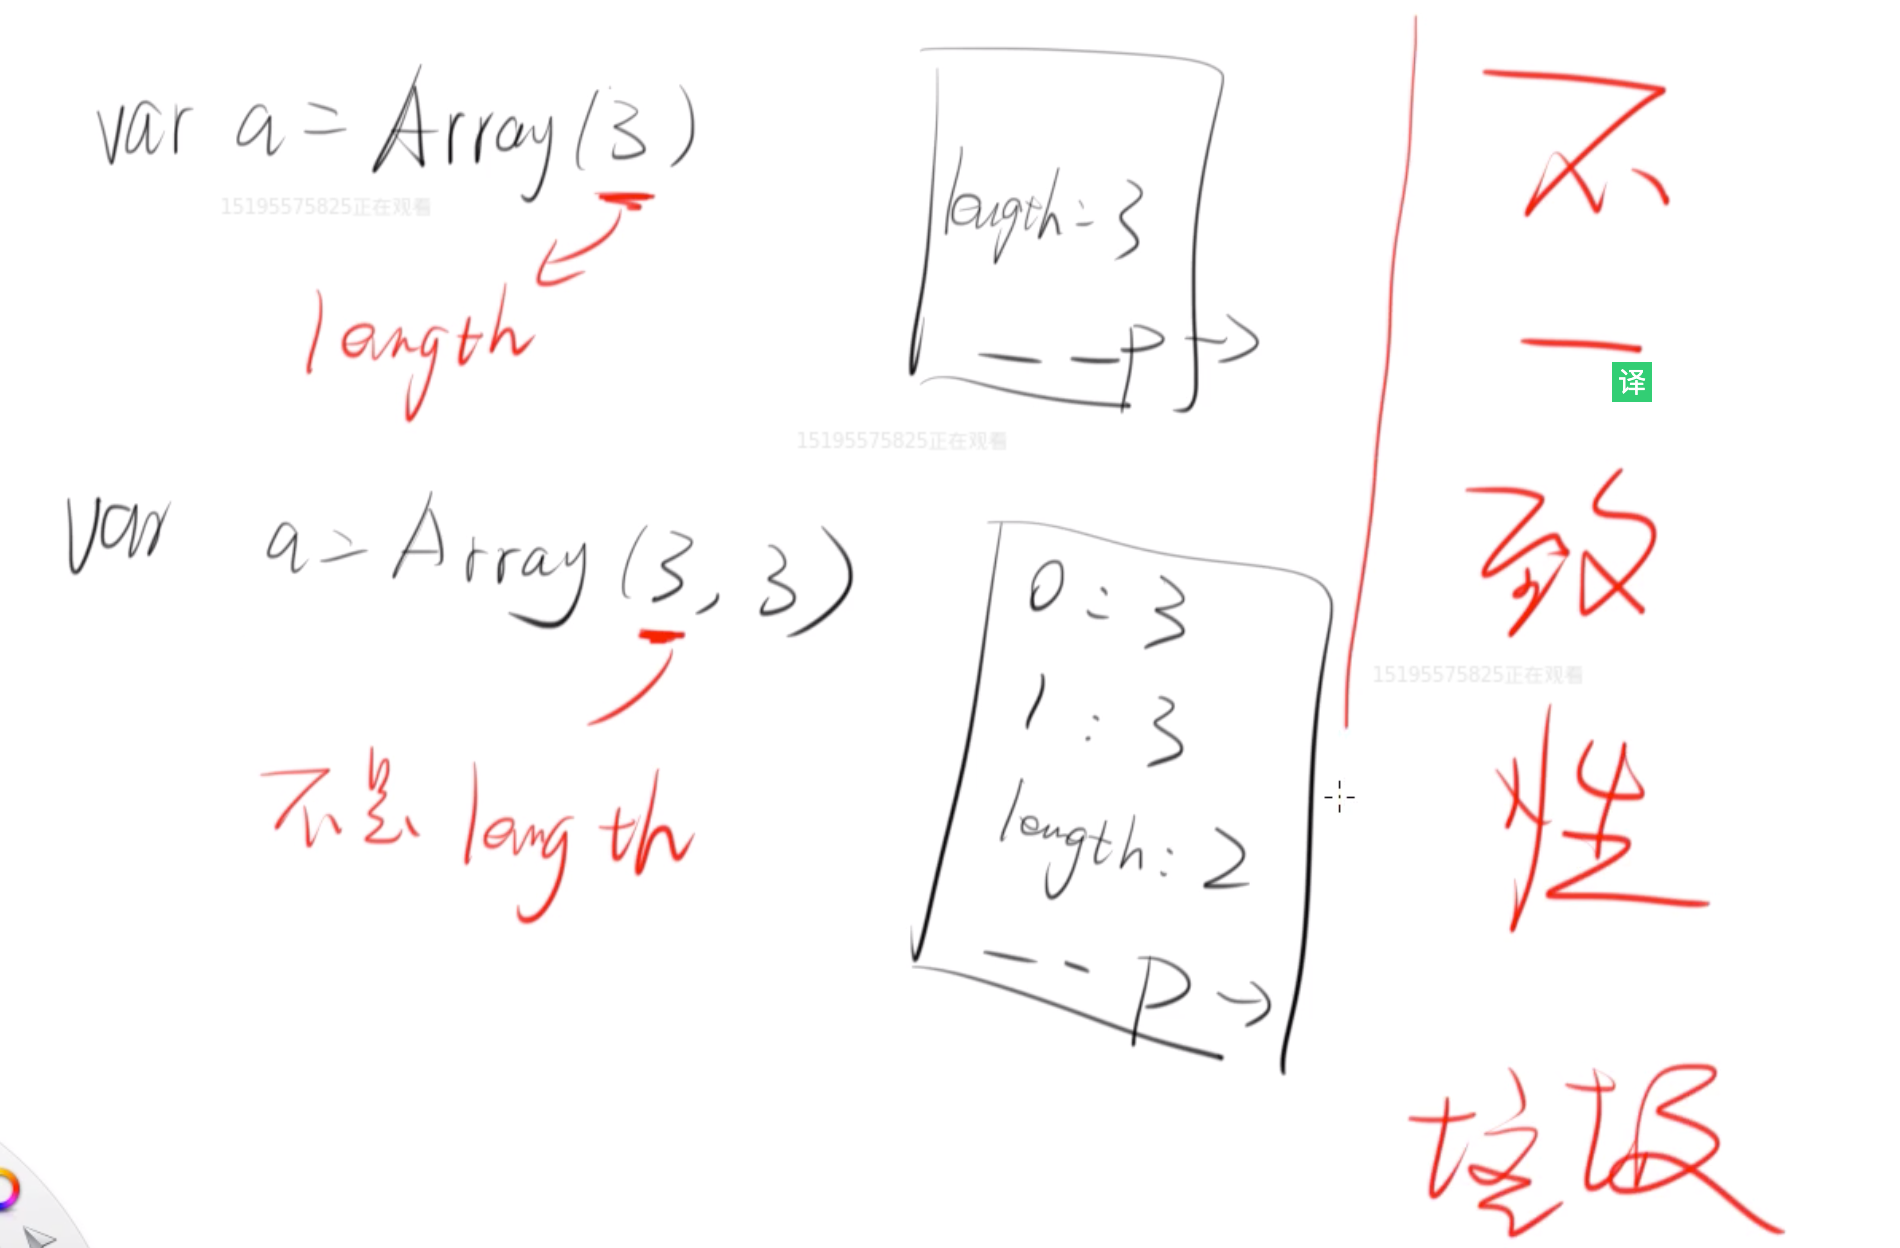 var a = Array(3)
15195575825正在观看
length
length: 3
__p →
15195575825正在观看
var a = Array(3, 3)
不是 length
0: 3
1: 3
length: 2
__p →
不
一
译
致
15195575825正在观看
性
垃圾